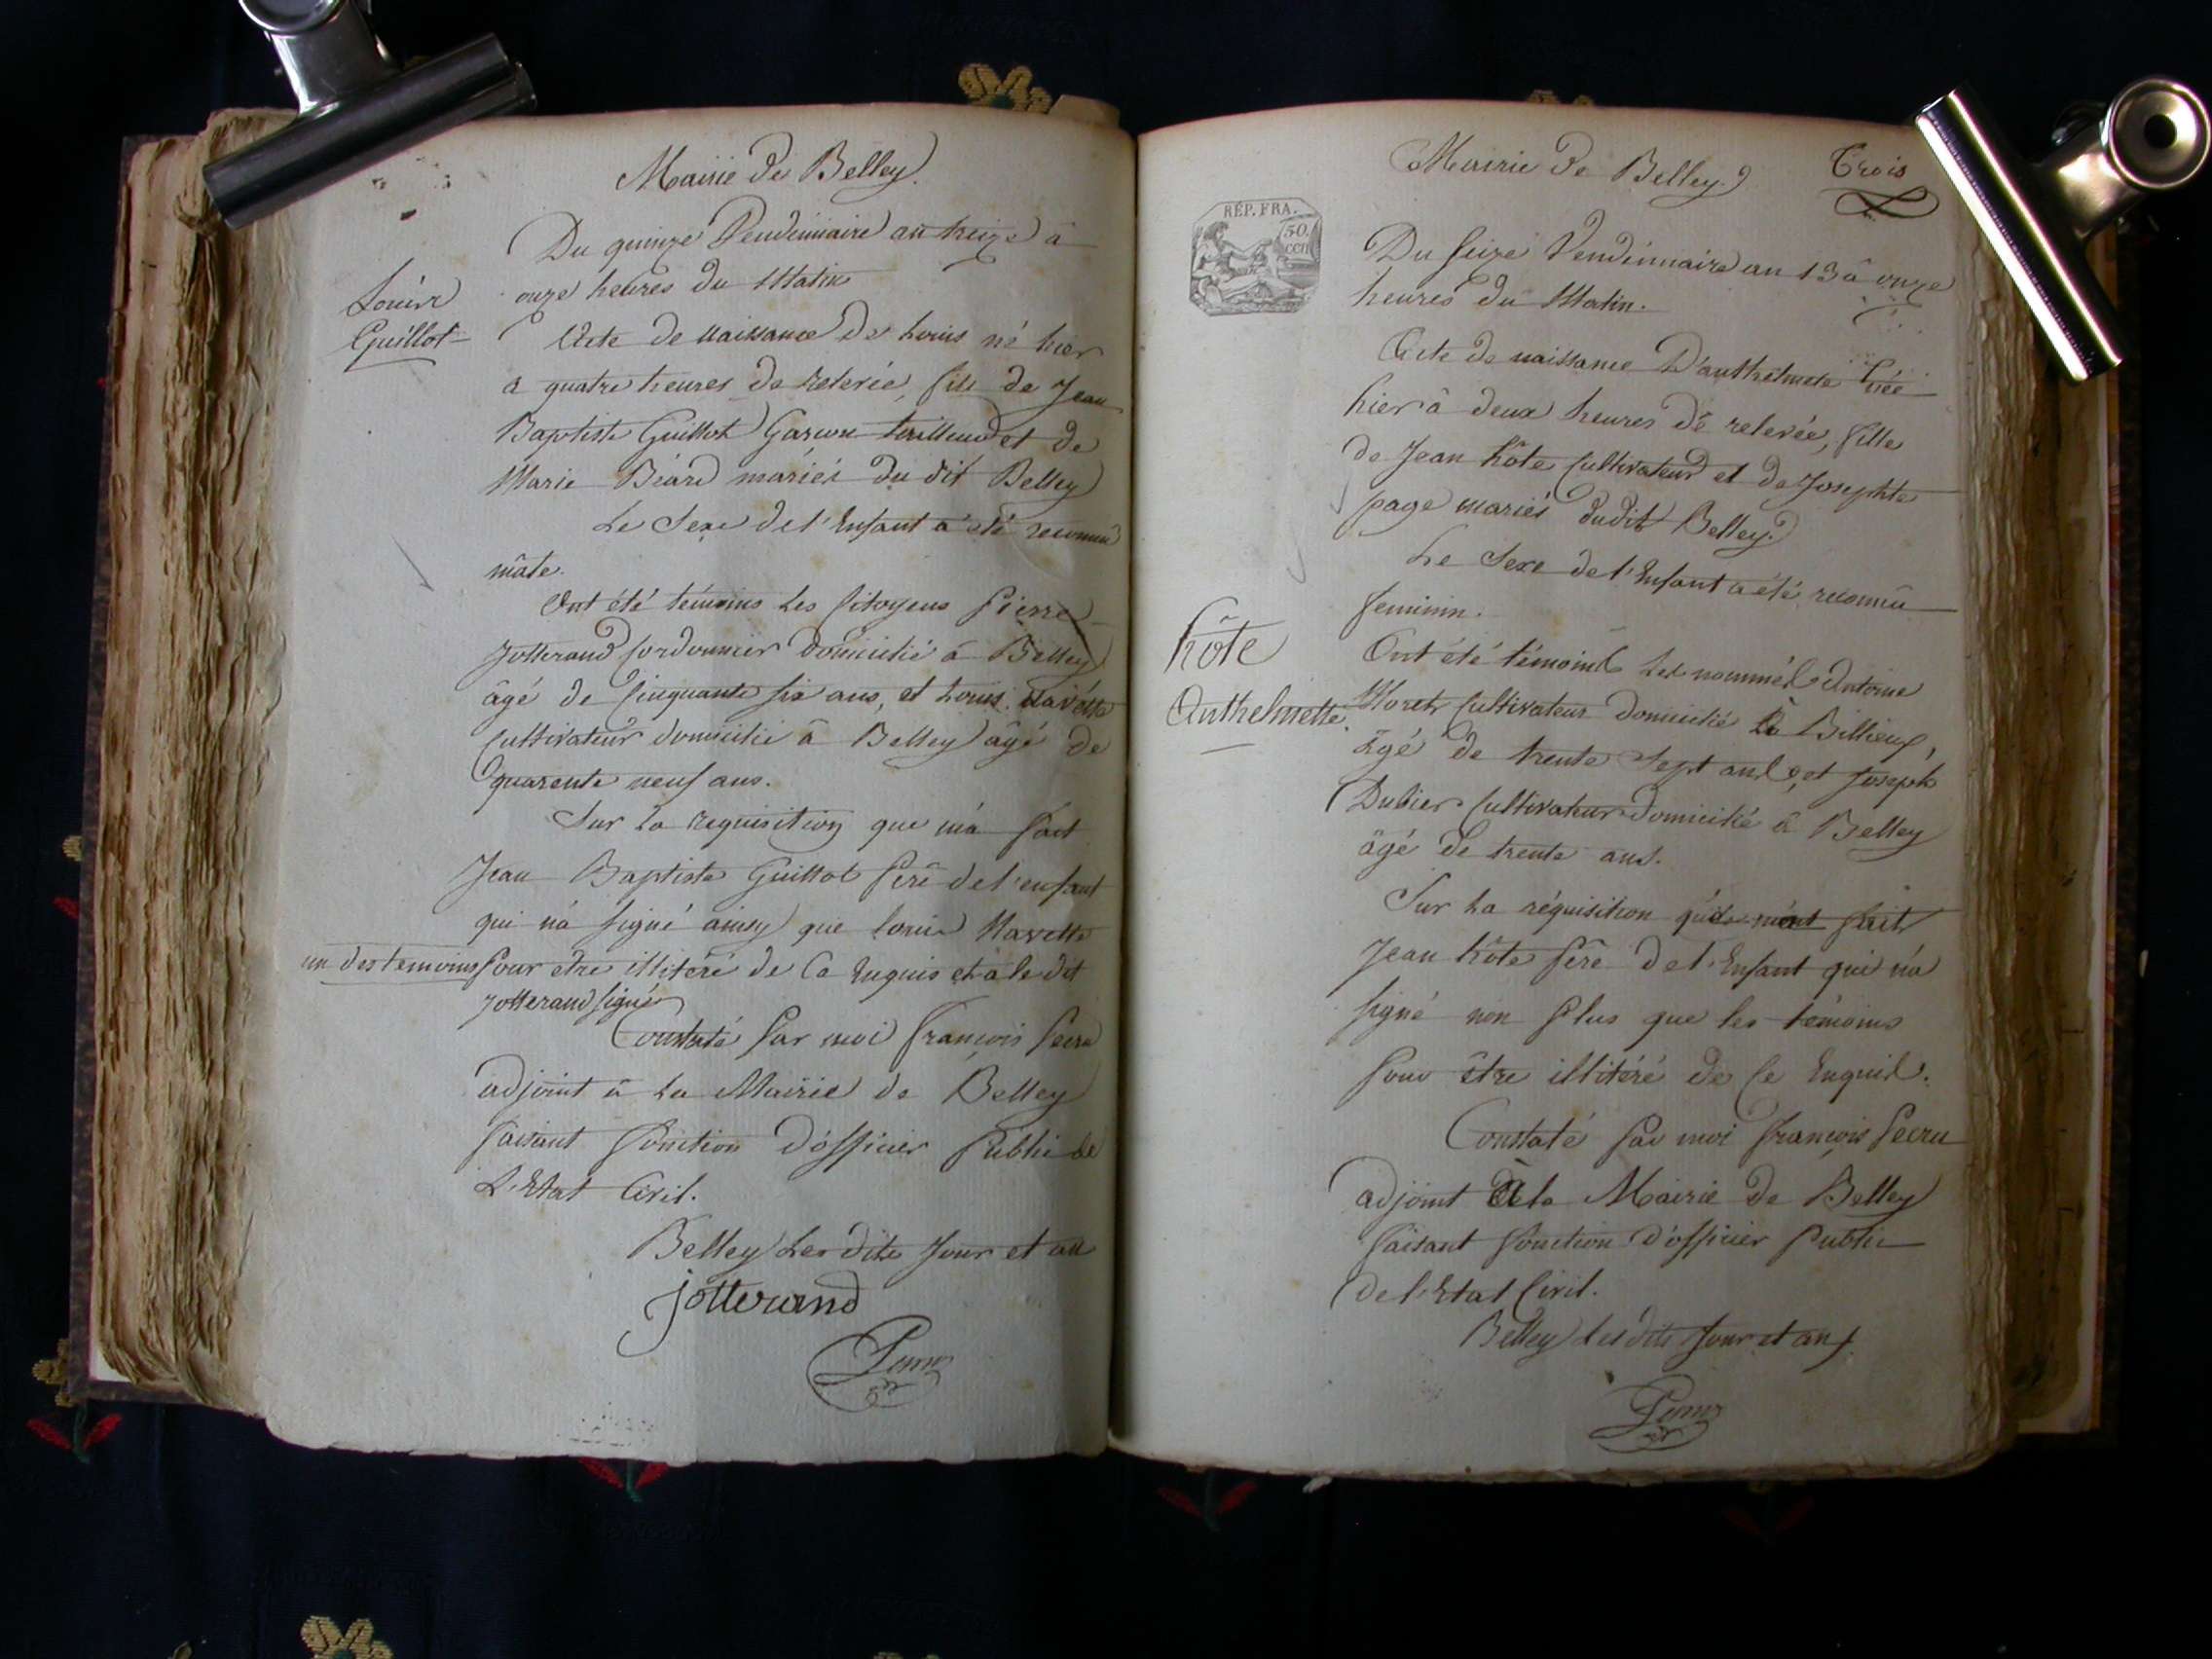 Mairie De Belley
Du quinze Vendémiaire an treize à
onze heures du Matin
Louis
Guillot
Acte de naissance De Louis né hier
a quatre heures de relevée, fils de Jean
Baptiste Guillot Garcon tailleur et de
Marie Béard mariés du dit Belley
Le Sexe de l'Enfant a été reconnu
mâle.
Ont été témoins Les Citoyens Pierre
Jotterand Cordonnier Domicilié à Belley
âgé de Cinquante six ans, et Louis
Cultivateur domicilié à Belley âgé de
quarente neuf ans.
Sur La requisition que m'a fait
Jean Baptiste Guillot Père de l'enfant
qui n'a signé ainsy que Louis
un des temoins Pour etre illitéré de Ce Enquis et à le dit
Jotterand signé
Constaté Par moi François
adjoint à La Mairie de Belley
faisant fonction D'officier Public de
L'Etat Civil.
Belley Les dits Jour et an
jotterand
Mairie De Belley
Trois
RÉP. FRA.
50.
CEN
Du Seize Vendémiaire an 13 à onze
heures du Matin.
Acte de naissance D'anthelmete née
hier à deux heures de relevée, fille
de Jean hôte Cultivateur et de Josephte
page mariés dudit Belley.
Le Sexe de l'Enfant a été reconnu
feminin.
hôte
Anthelmette.
Ont été témoins Les nommés Antoine
Moret Cultivateur Domicilié à Billieux,
âgé de trente Sept ans, et Joseph
Dubier Cultivateur Domicilié à Belley
âgé de trente ans.
Sur La réquisition fait
Jean hôte Père de l'Enfant qui n'a
signé non Plus que les témoins
Pour être illitéré de Ce Enquis.
Constaté Par moi François
adjoint à la Mairie de Belley
faisant fonction D'officier Public
de l'Etat Civil.
Belley Les dits Jour et an